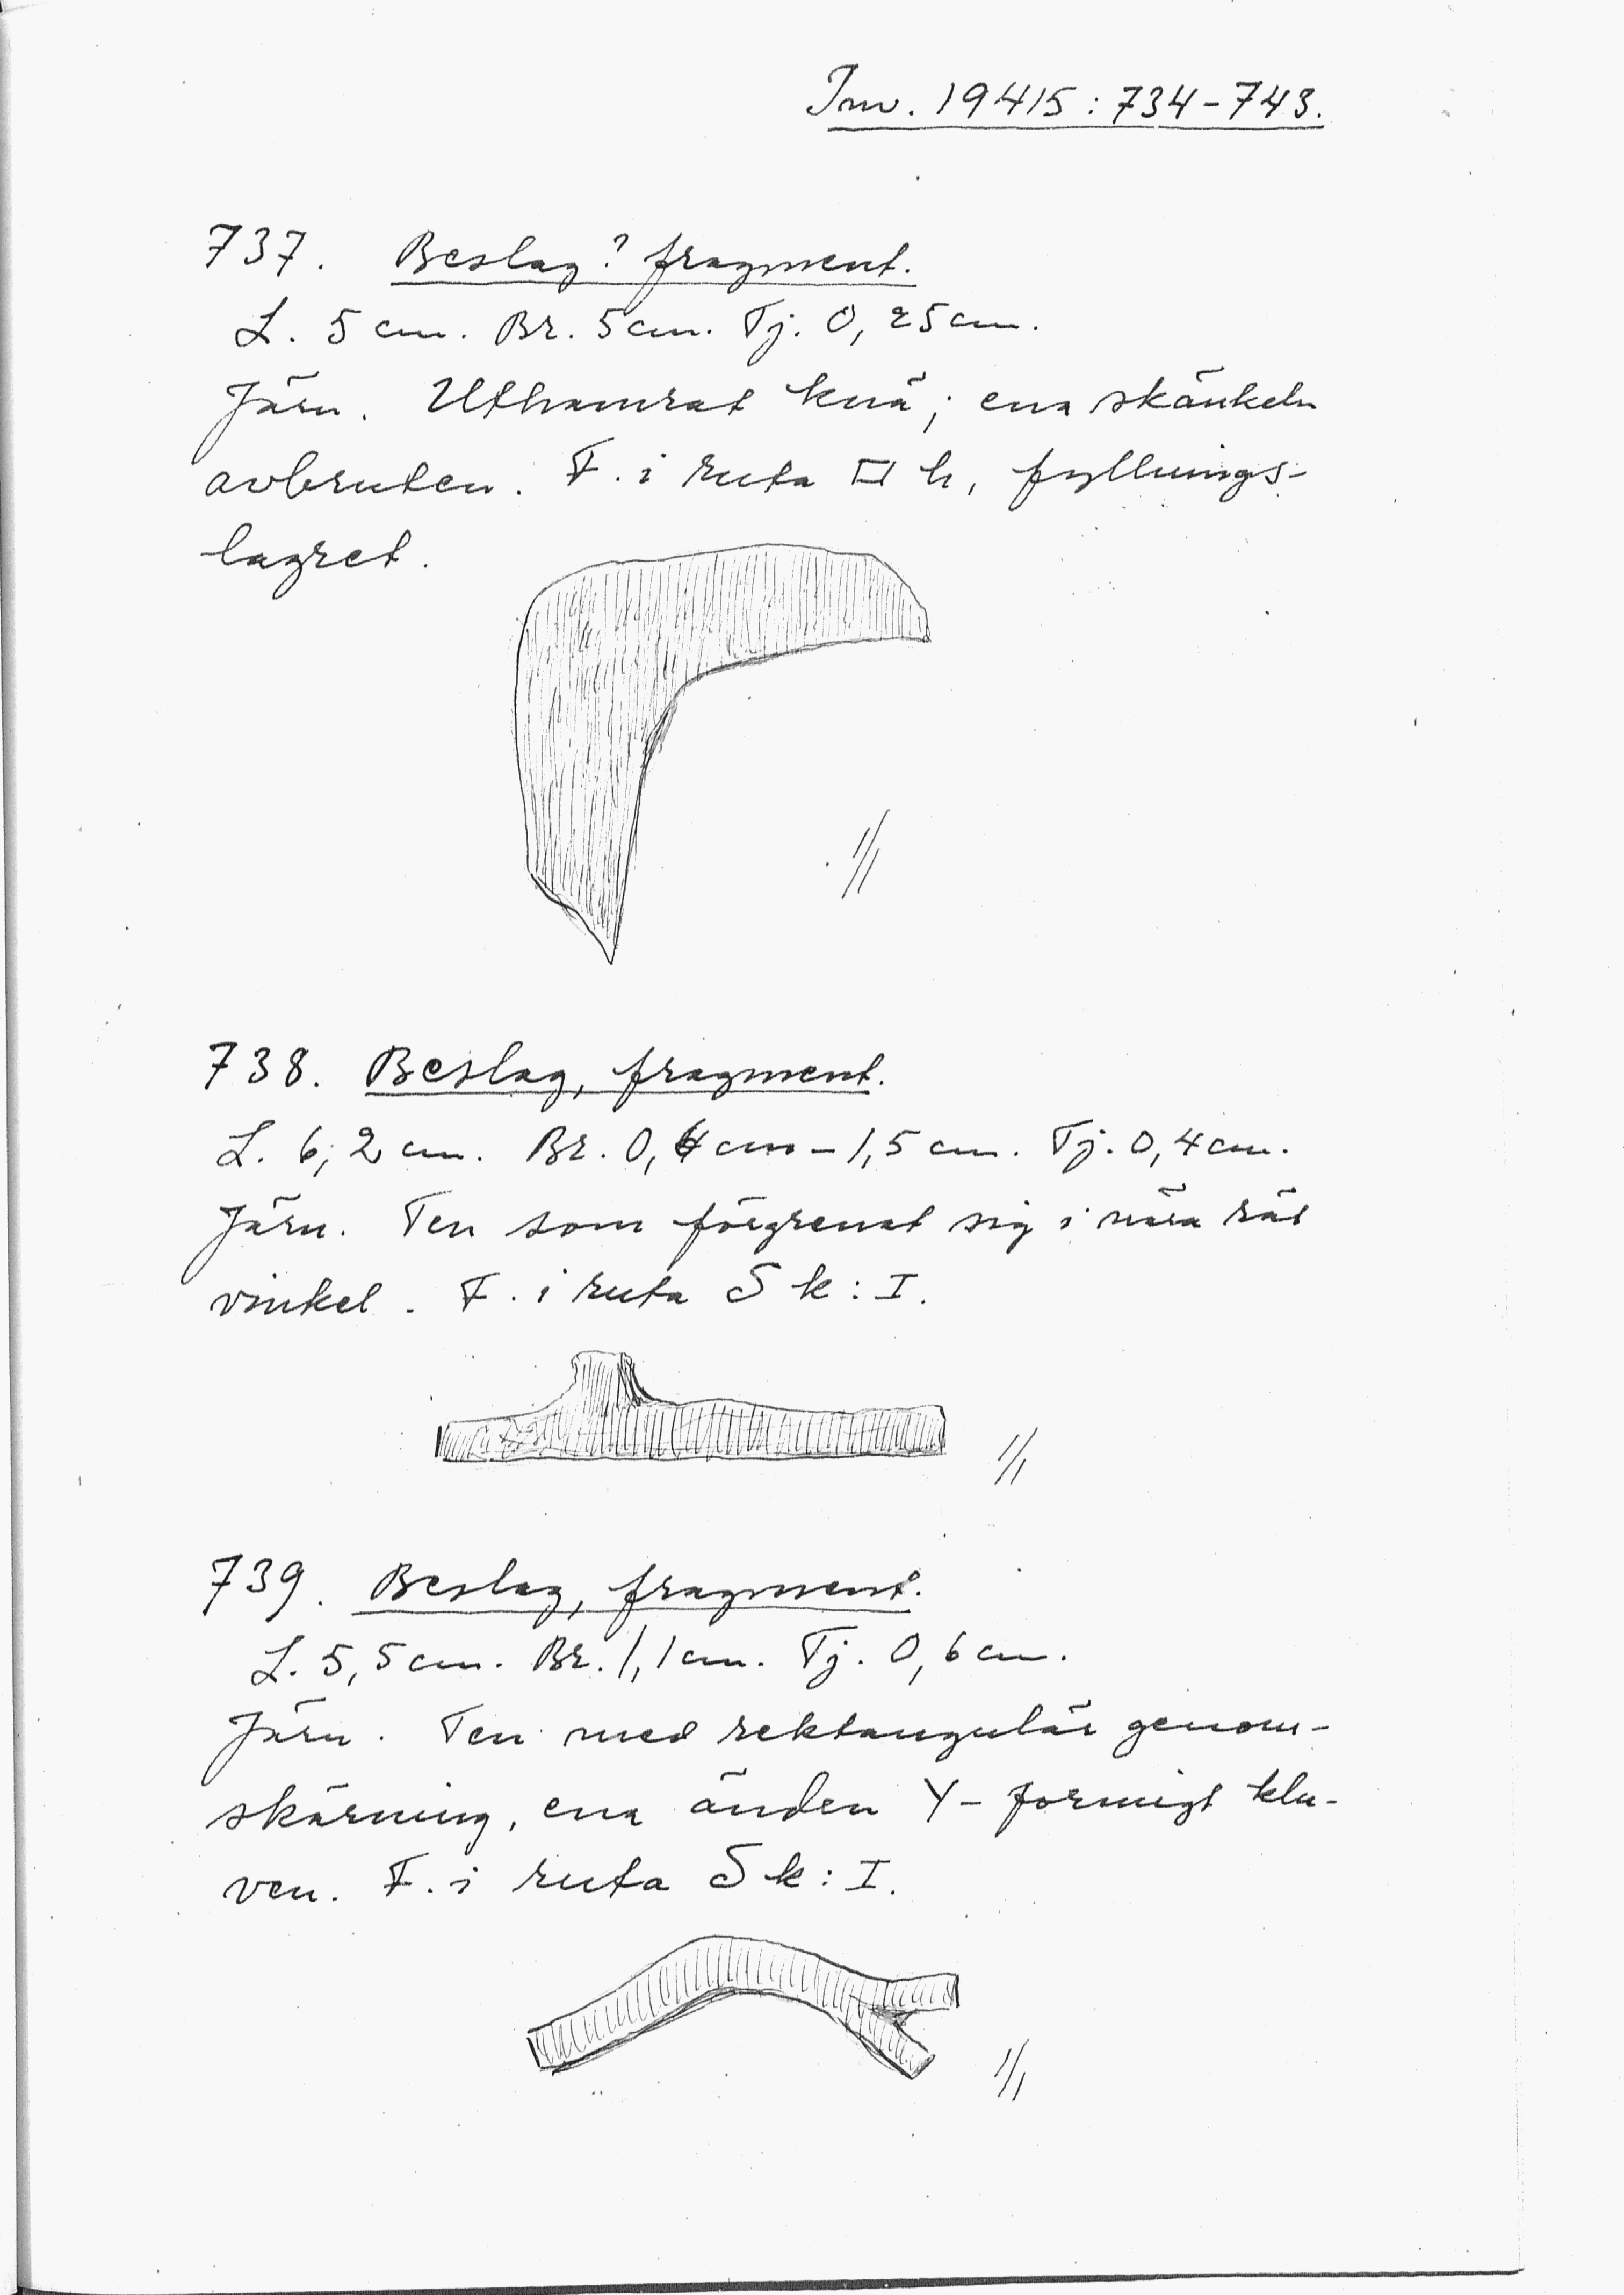 Inv. 19415:734-743.
737. Beslag? fragment.
L. 5 cm. Br. 5 cm. Tj. 0,25 cm.
Järn. Uthamrat knä; ena skänkeln
avbruten. F. i ruta □ h, fyllnings-
lagret.
1/1
738. Beslag, fragment.
L. 6,2 cm. Br. 0,6 cm - 1,5 cm. Tj. 0,4 cm.
Järn. Ten som förgrenat sig i nära rät
vinkel. F. i ruta S k:I.
1/1
739. Beslag, fragment.
L. 5,5 cm. Br. 1,1 cm. Tj. 0,6 cm.
Järn. Ten med rektangulär genom-
skärning, ena änden Y-formigt klu-
ven. F. i ruta S k:I.
1/1